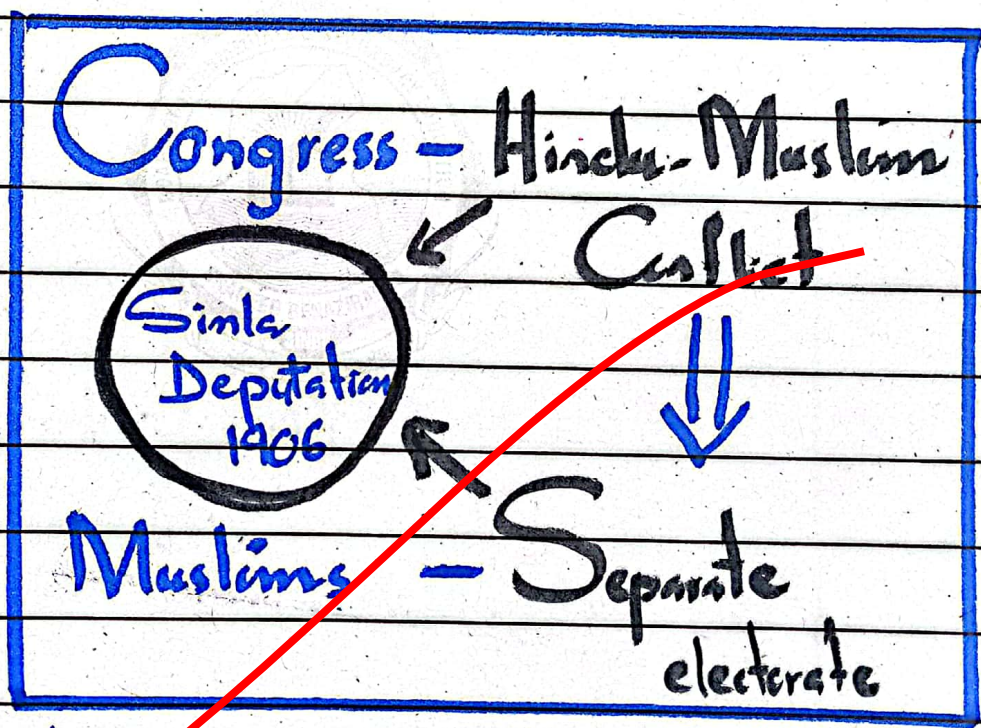 Congress - Hindu-Muslim
Conflict
Simla
Deputation
1906
Muslims - Separate
electorate